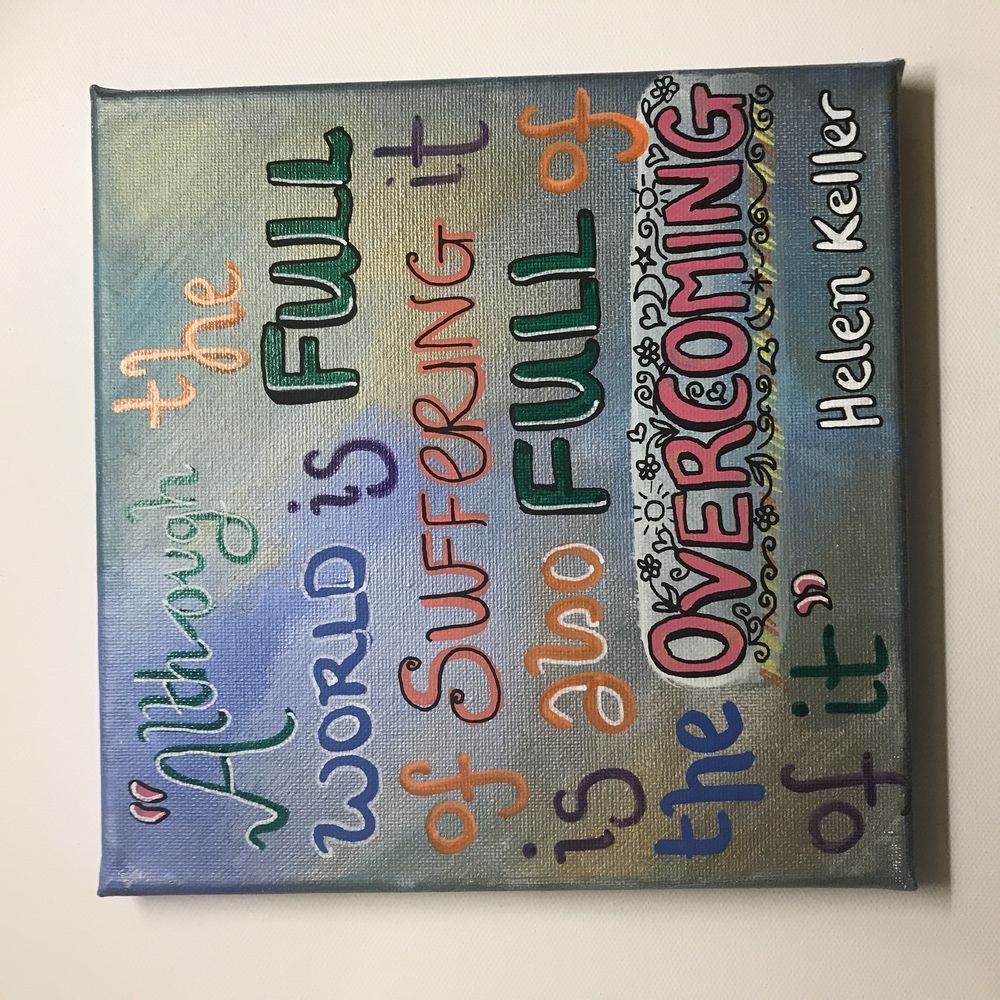 "Although the
WORLD is FULL
of SUFFERING it
is also FULL of
the OVERCOMING
of it"
Helen Keller